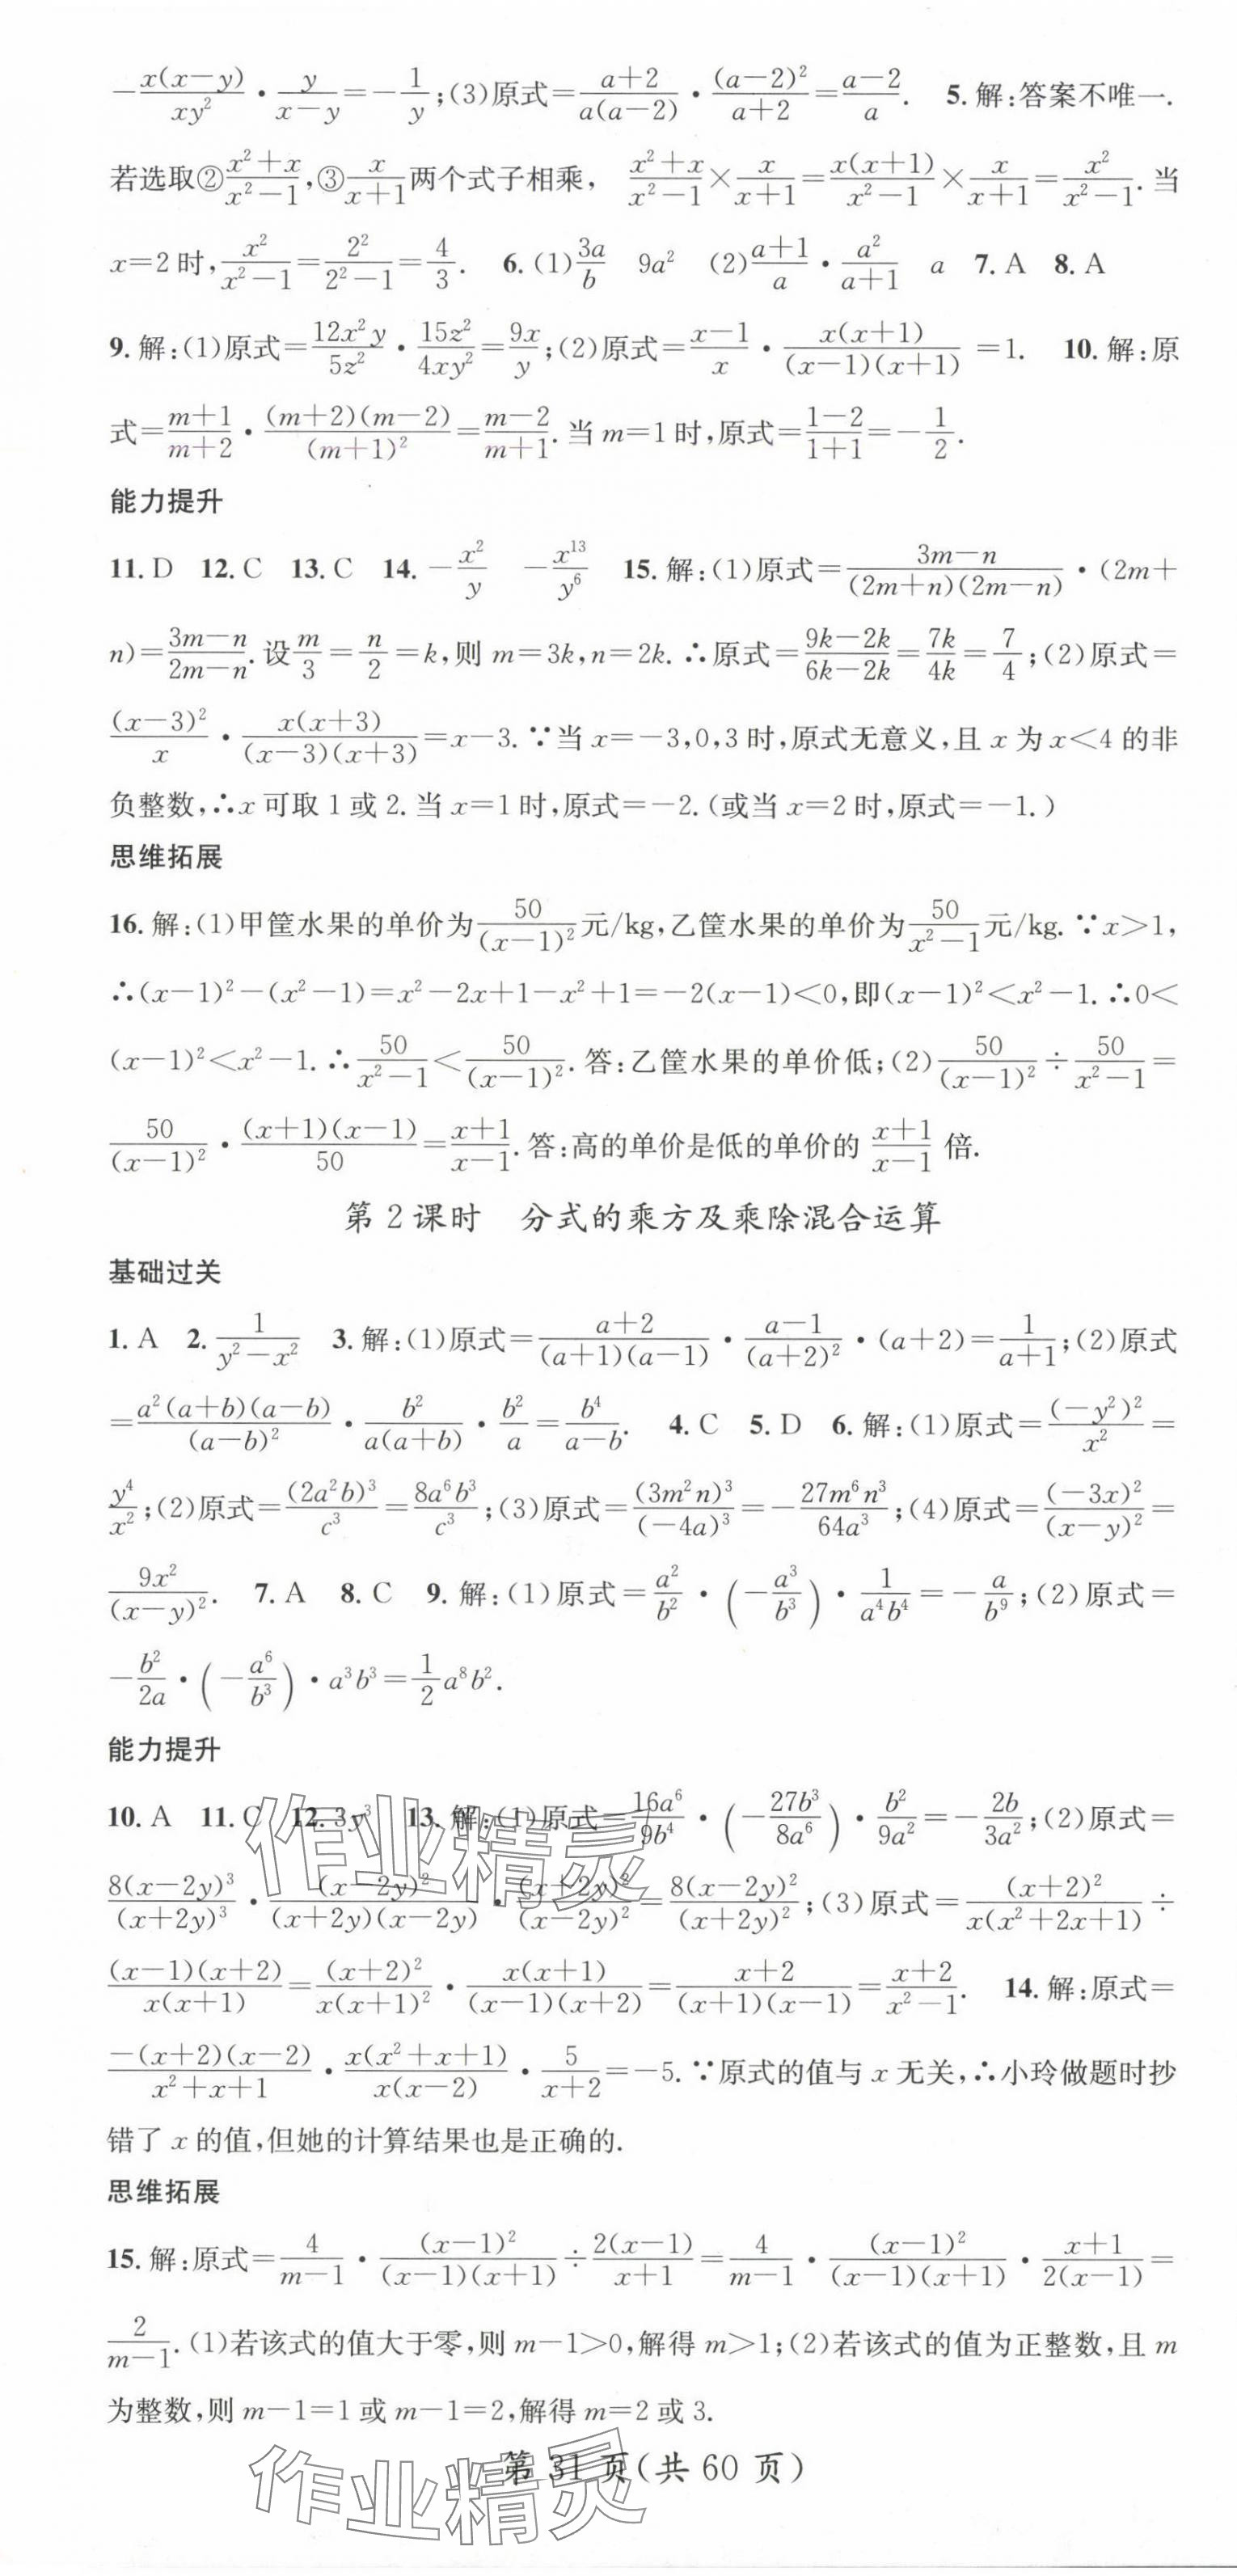 $-\frac{x(x-y)}{xy^2}\cdot\frac{y}{x-y}=-\frac{1}{y}$;(3)原式=$\frac{a+2}{a(a-2)}\cdot\frac{(a-2)^2}{a+2}=\frac{a-2}{a}$. 5.解:答案不唯一.
若选取②$\frac{x^2+x}{x^2-1}$,③$\frac{x}{x+1}$两个式子相乘, $\frac{x^2+x}{x^2-1}\times\frac{x}{x+1}=\frac{x(x+1)}{x^2-1}\times\frac{x}{x+1}=\frac{x^2}{x^2-1}$.当
x=2时,$\frac{x^2}{x^2-1}=\frac{2^2}{2^2-1}=\frac{4}{3}$. 6.(1)$\frac{3a}{b}$ $9a^2$ (2)$\frac{a+1}{a}\cdot\frac{a^2}{a+1}$ a 7.A 8.A
9.解:(1)原式=$\frac{12x^2y}{5z^2}\cdot\frac{15z^2}{4xy^2}=\frac{9x}{y}$;(2)原式=$\frac{x-1}{x}\cdot\frac{x(x+1)}{(x-1)(x+1)}=1$. 10.解:原
式=$\frac{m+1}{m+2}\cdot\frac{(m+2)(m-2)}{(m+1)^2}=\frac{m-2}{m+1}$.当m=1时,原式=$\frac{1-2}{1+1}=-\frac{1}{2}$.
能力提升
11.D 12.C 13.C 14.$-\frac{x^2}{y}$ $-\frac{x^{13}}{y^6}$ 15.解:(1)原式=$\frac{3m-n}{(2m+n)(2m-n)}$·(2m+
n)=$\frac{3m-n}{2m-n}$.设$\frac{m}{3}=\frac{n}{2}=k$,则m=3k,n=2k.∴原式=$\frac{9k-2k}{6k-2k}=\frac{7k}{4k}=\frac{7}{4}$;(2)原式=
$\frac{(x-3)^2}{x}\cdot\frac{x(x+3)}{(x-3)(x+3)}=x-3$.∵当x=-3,0,3时,原式无意义,且x为x<4的非
负整数,∴x可取1或2.当x=1时,原式=-2.(或当x=2时,原式=-1.)
思维拓展
16.解:(1)甲筐水果的单价为$\frac{50}{(x-1)^2}$元/kg,乙筐水果的单价为$\frac{50}{x^2-1}$元/kg.∵x>1,
∴$(x-1)^2-(x^2-1)=x^2-2x+1-x^2+1=-2(x-1)<0$,即$(x-1)^2<x^2-1$.∴0<
$(x-1)^2<x^2-1$.∴$\frac{50}{x^2-1}<\frac{50}{(x-1)^2}$.答:乙筐水果的单价低;(2)$\frac{50}{(x-1)^2}\div\frac{50}{x^2-1}=$
$\frac{50}{(x-1)^2}\cdot\frac{(x+1)(x-1)}{50}=\frac{x+1}{x-1}$.答:高的单价是低的单价的$\frac{x+1}{x-1}$倍.
第2课时 分式的乘方及乘除混合运算
基础过关
1.A 2.$\frac{1}{y^2-x^2}$ 3.解:(1)原式=$\frac{a+2}{(a+1)(a-1)}\cdot\frac{a-1}{(a+2)^2}\cdot(a+2)=\frac{1}{a+1}$;(2)原式
=$\frac{a^2(a+b)(a-b)}{(a-b)^2}\cdot\frac{b^2}{a(a+b)}\cdot\frac{b^2}{a}=\frac{b^4}{a-b}$. 4.C 5.D 6.解:(1)原式=$\frac{(-y^2)^2}{x^2}=$
$\frac{y^4}{x^2}$;(2)原式=$\frac{(2a^2b)^3}{c^3}=\frac{8a^6b^3}{c^3}$;(3)原式=$\frac{(3m^2n)^3}{(-4a)^3}=-\frac{27m^6n^3}{64a^3}$;(4)原式=$\frac{(-3x)^2}{(x-y)^2}=$
$\frac{9x^2}{(x-y)^2}$. 7.A 8.C 9.解:(1)原式=$\frac{a^2}{b^2}\cdot\left(-\frac{a^3}{b^3}\right)\cdot\frac{1}{a^4b^4}=-\frac{a}{b^9}$;(2)原式=
$-\frac{b^2}{2a}\cdot\left(-\frac{a^6}{b^3}\right)\cdot a^3b^3=\frac{1}{2}a^8b^2$.
能力提升
10.A 11.C 12.$3y^3$ 13.解:(1)原式=$\frac{16a^6}{9b^4}\cdot\left(-\frac{27b^3}{8a^6}\right)\cdot\frac{b^2}{9a^2}=-\frac{2b}{3a^2}$;(2)原式=
$\frac{8(x-2y)^3}{(x+2y)^3}\cdot\frac{(x-2y)^2}{(x+2y)(x-2y)}\cdot\frac{(x+2y)^2}{(x-2y)^2}=\frac{8(x-2y)^2}{(x+2y)^2}$;(3)原式=$\frac{(x+2)^2}{x(x^2+2x+1)}\div$
$\frac{(x-1)(x+2)}{x(x+1)}=\frac{(x+2)^2}{x(x+1)^2}\cdot\frac{x(x+1)}{(x-1)(x+2)}=\frac{x+2}{(x+1)(x-1)}=\frac{x+2}{x^2-1}$. 14.解:原式=
$\frac{-(x+2)(x-2)}{x^2+x+1}\cdot\frac{x(x^2+x+1)}{x(x-2)}\cdot\frac{5}{x+2}=-5$.∵原式的值与x无关,∴小玲做题时抄
错了x的值,但她的计算结果也是正确的.
思维拓展
15.解:原式=$\frac{4}{m-1}\cdot\frac{(x-1)^2}{(x-1)(x+1)}\div\frac{2(x-1)}{x+1}=\frac{4}{m-1}\cdot\frac{(x-1)^2}{(x-1)(x+1)}\cdot\frac{x+1}{2(x-1)}=$
$\frac{2}{m-1}$.(1)若该式的值大于零,则m-1>0,解得m>1;(2)若该式的值为正整数,且m
为整数,则m-1=1或m-1=2,解得m=2或3.
第31页(共60页)
作业精灵
作业精灵